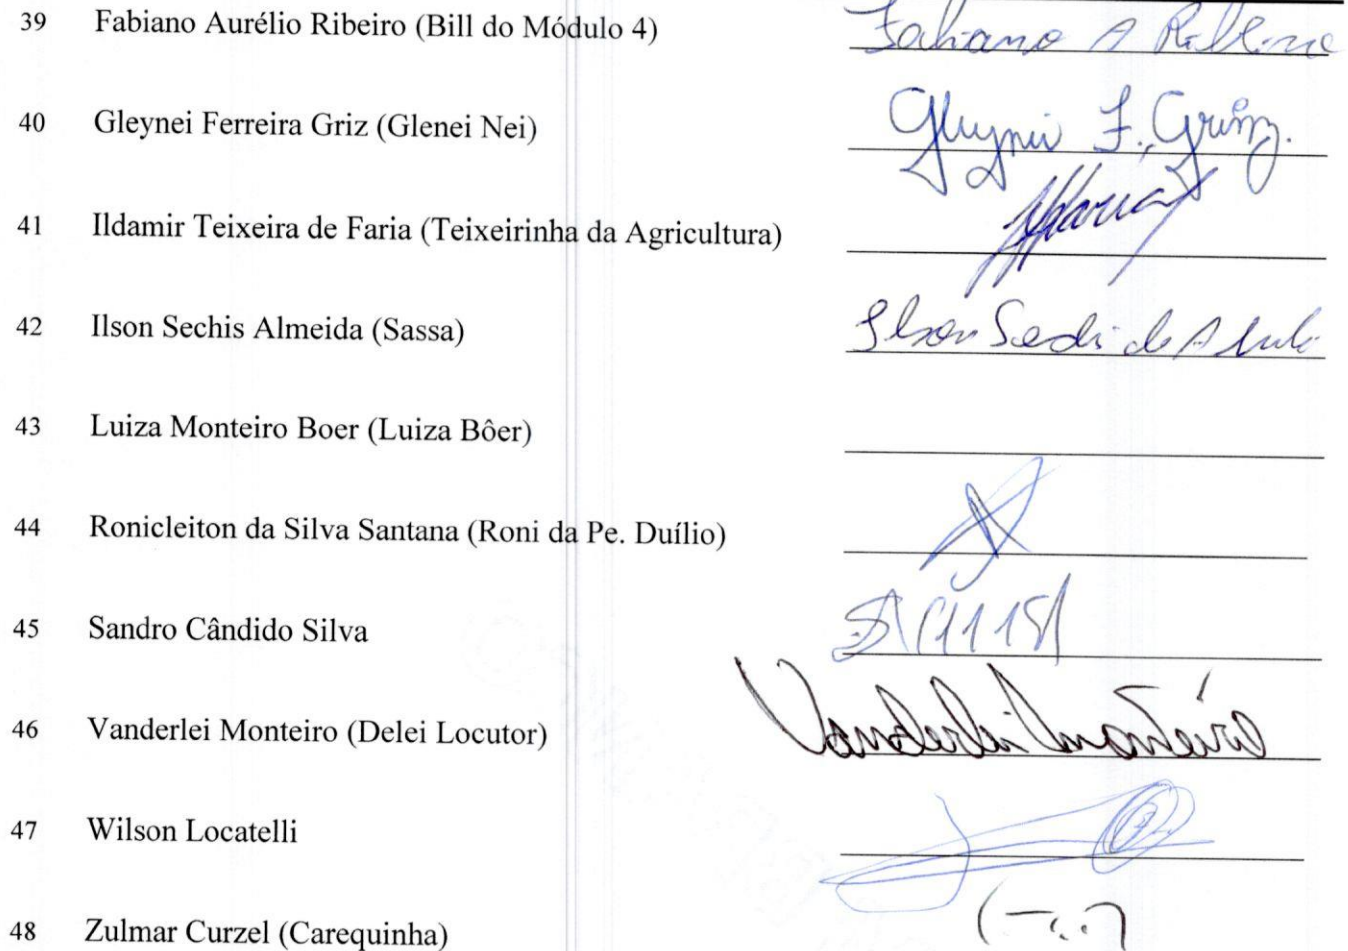 39 Fabiano Aurélio Ribeiro (Bill do Módulo 4) Fabiano A Ribeiro
40 Gleynei Ferreira Griz (Glenei Nei) Gleynei F. Griz.
41 Ildamir Teixeira de Faria (Teixeirinha da Agricultura)
42 Ilson Sechis Almeida (Sassa) Ilson
43 Luiza Monteiro Boer (Luiza Bôer)
44 Ronicleiton da Silva Santana (Roni da Pe. Duílio)
45 Sandro Cândido Silva
46 Vanderlei Monteiro (Delei Locutor) Vanderlei Monteiro
47 Wilson Locatelli
48 Zulmar Curzel (Carequinha)